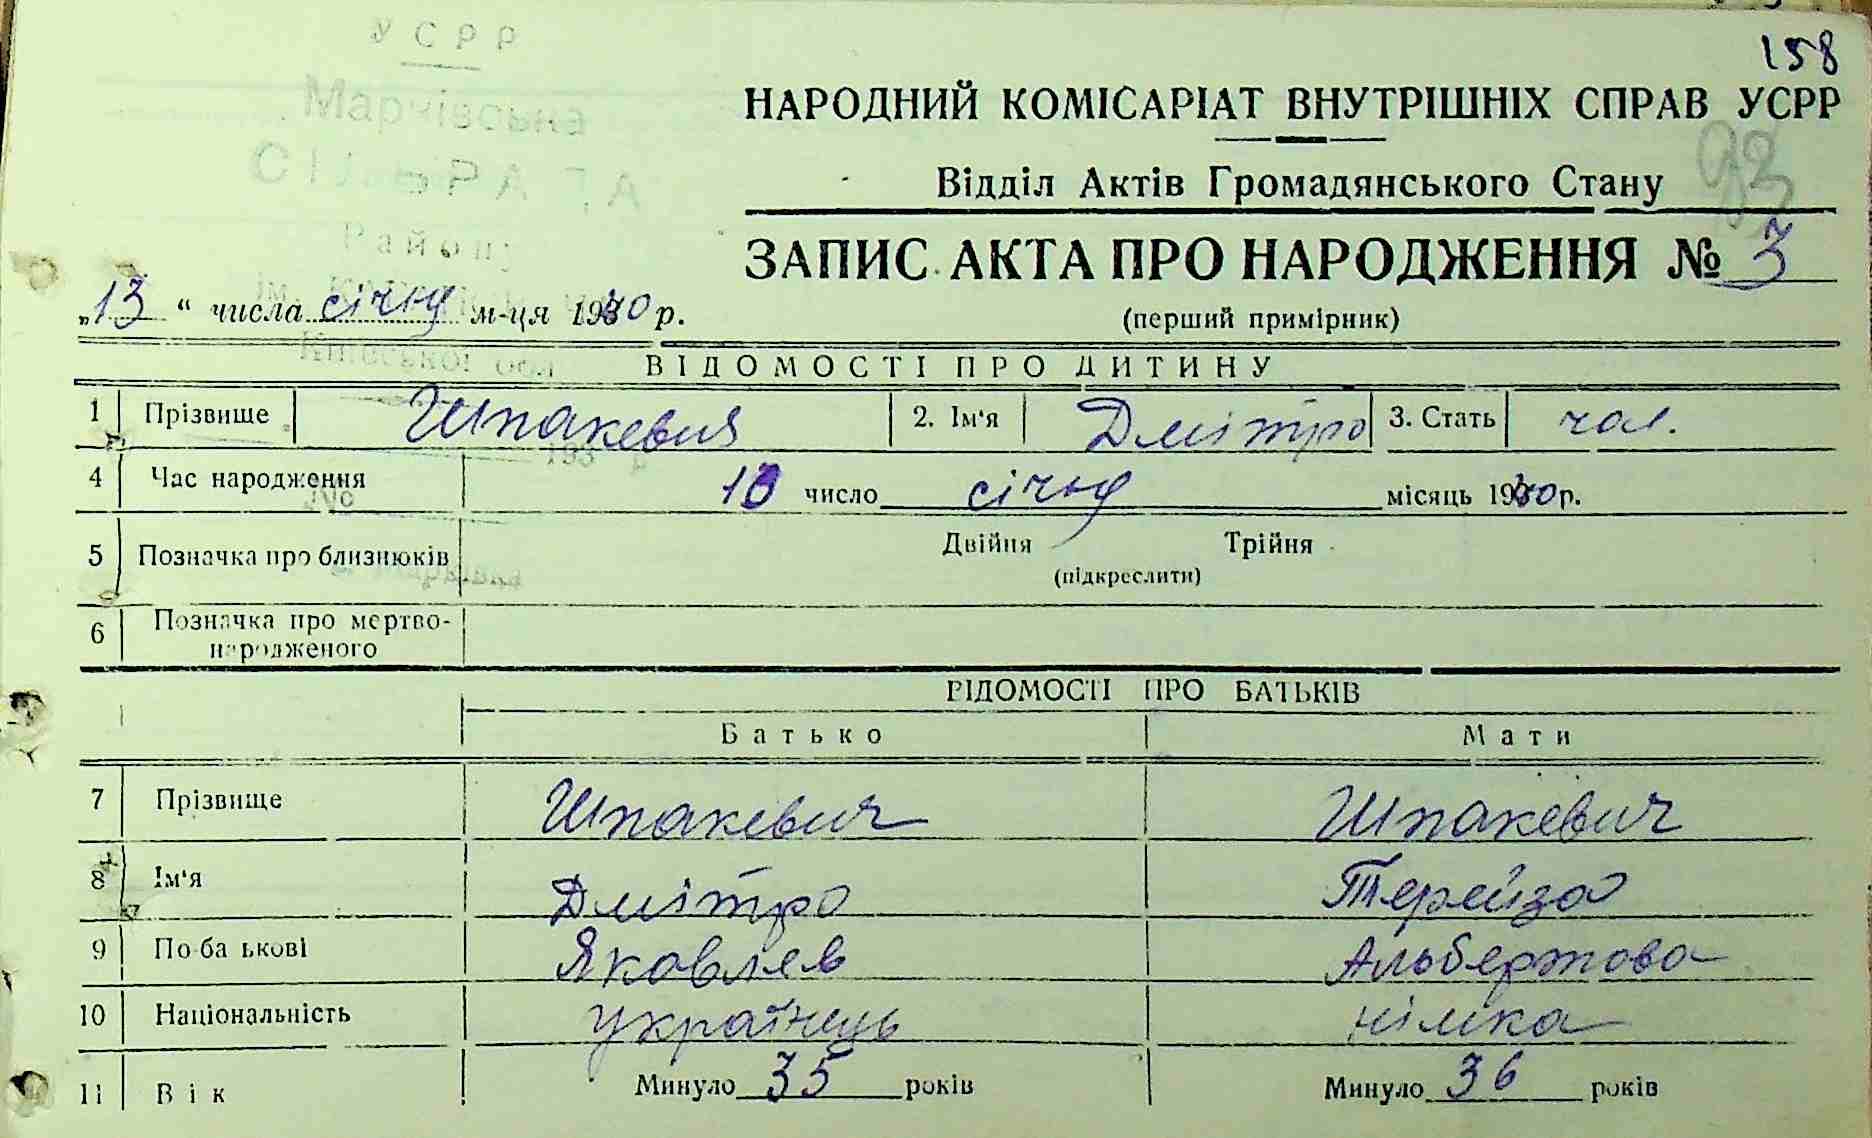 158
УСРР
Марчівська
СІЛЬРАДА
Району
Київської обл
НАРОДНИЙ КОМІСАРІАТ ВНУТРІШНІХ СПРАВ УСРР
Відділ Актів Громадянського Стану
93
ЗАПИС АКТА ПРО НАРОДЖЕННЯ № 3
(перший примірник)
„13“ числа січня м-ця 1930 р.
ВІДОМОСТІ ПРО ДИТИНУ
1 Прізвище Шпакевич 2. Ім'я Дмітро 3. Стать чол.
4 Час народження 10 число січня місяць 1930 р.
5 Позначка про близнюків Двійня Трійня
(підкреслити)
6 Позначка про мертво-
народженого
ВІДОМОСТІ ПРО БАТЬКІВ
Батько Мати
7 Прізвище Шпакевич Шпакевич
8 Ім'я Дмітро Терейза
9 По ба ькові Яковлев Альбертова
10 Національність українець німка
11 Вік Минуло 35 років Минуло 36 років